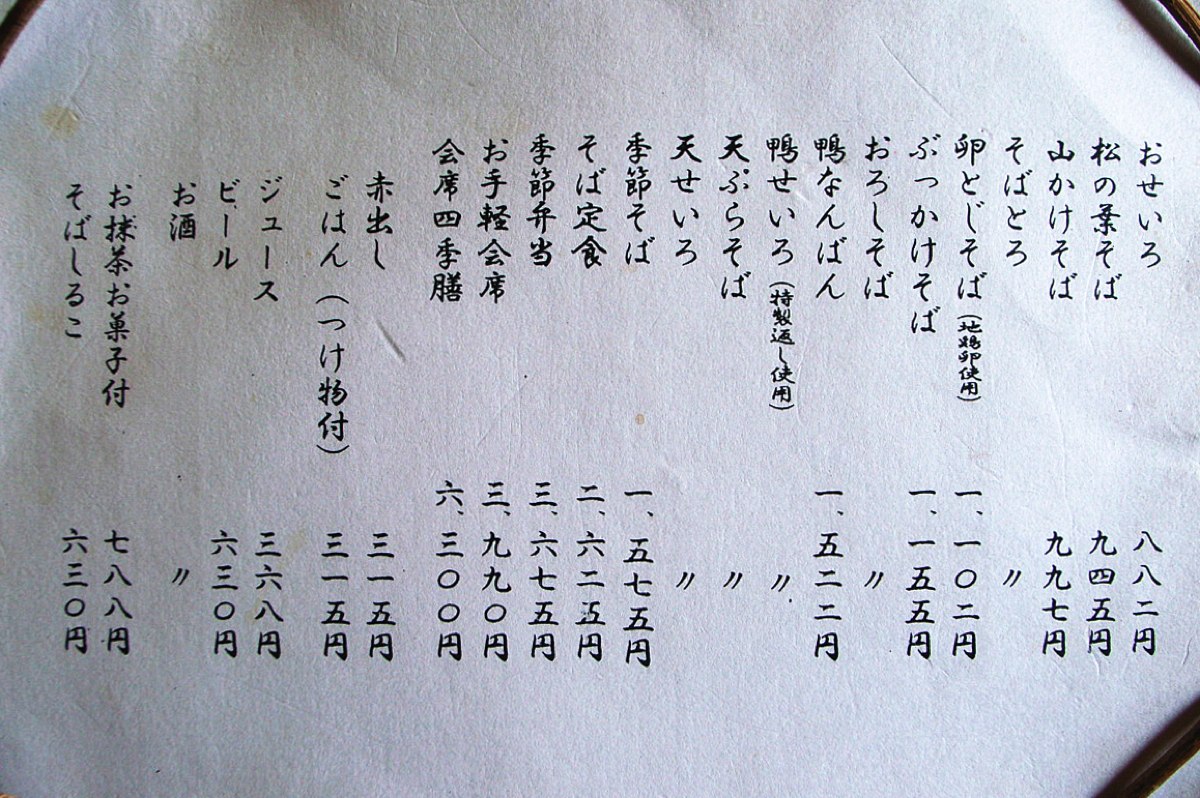 おせいろ 八八二円
松の葉そば 九四五円
山かけそば 九九七円
そばとろ 〃
卵とじそば（地鶏卵使用） 一、一〇二円
ぶっかけそば 一、一五五円
おろしそば 〃
鴨なんばん 一、五二二円
鴨せいろ（特製返し使用） 〃
天ぷらそば 〃
天せいろ 〃
季節そば 一、五七五円
そば定食 二、六二五円
季節弁当 三、六七五円
お手軽会席 三、九九〇円
会席四季膳 六、三〇〇円
赤出し 三一五円
ごはん（つけ物付） 三一五円
ジュース 三六八円
ビール 六三〇円
お酒 〃
お抹茶お菓子付 七八八円
そばしるこ 六三〇円